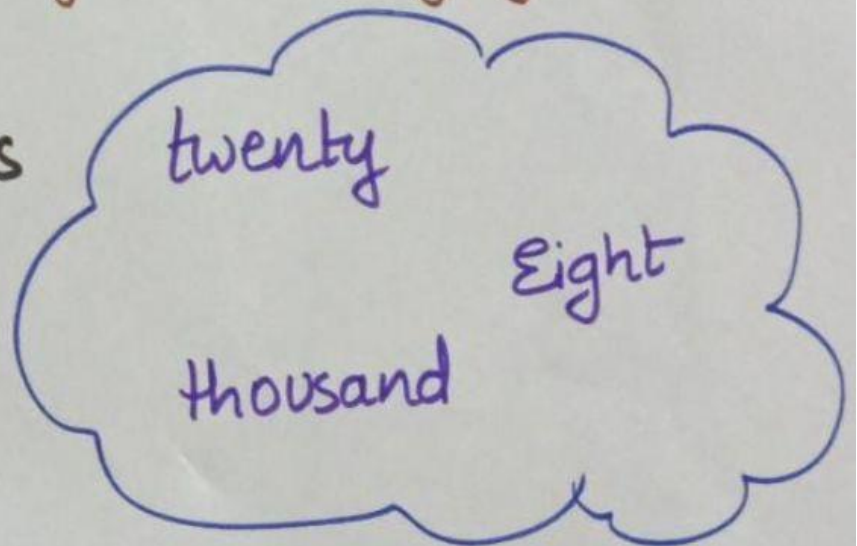 twenty
Eight
thousand